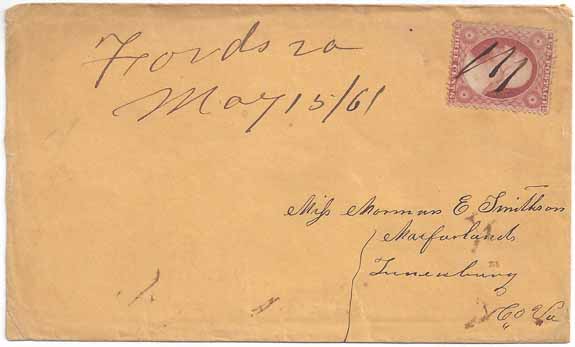 Fords va
May 15/61
Miss Norman E Smithson
Macfarlands
Lunenburg
Co Va